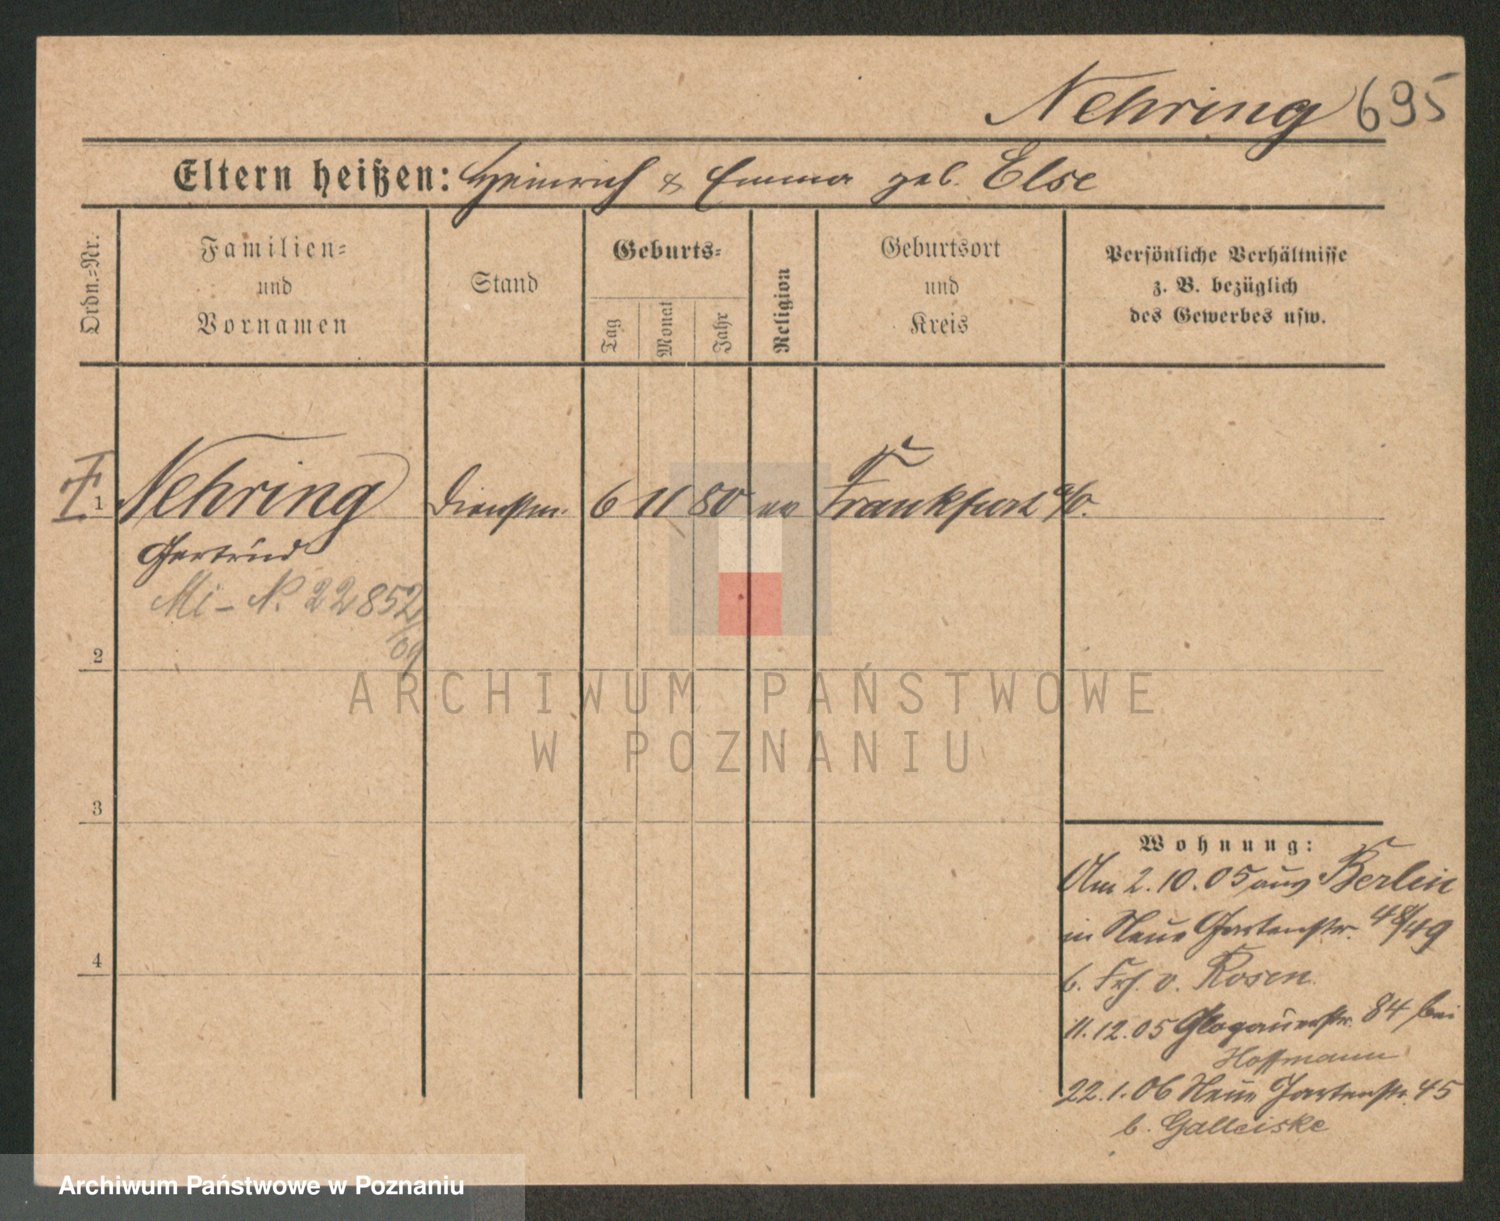 Nehring 695
Eltern heißen: Heinrich & Emma geb. Else
Ordn.=Nr.
Familien=
und
Vornamen
Stand
Geburts=
Tag
Monat
Jahr
Religion
Geburtsort
und
Kreis
Persönliche Verhältnisse
z. B. bezüglich
des Gewerbes usw.
I 1 Nehring Dienstm. 6 11 80 ev Frankfurt a/O.
Gertrud
Mi - N. 22852
/09
2
3
4
ARCHIWUM PAŃSTWOWE
W POZNANIU
Wohnung:
Am 2.10.05 aus Berlin
in Neue Gartenstr. 48/49
b. Frh. v. Rosen
11.12.05 Glogauerstr. 84 bei
Hoffmann
22.1.06 Neue Gartenstr. 45
b. Galleiske
Archiwum Państwowe w Poznaniu